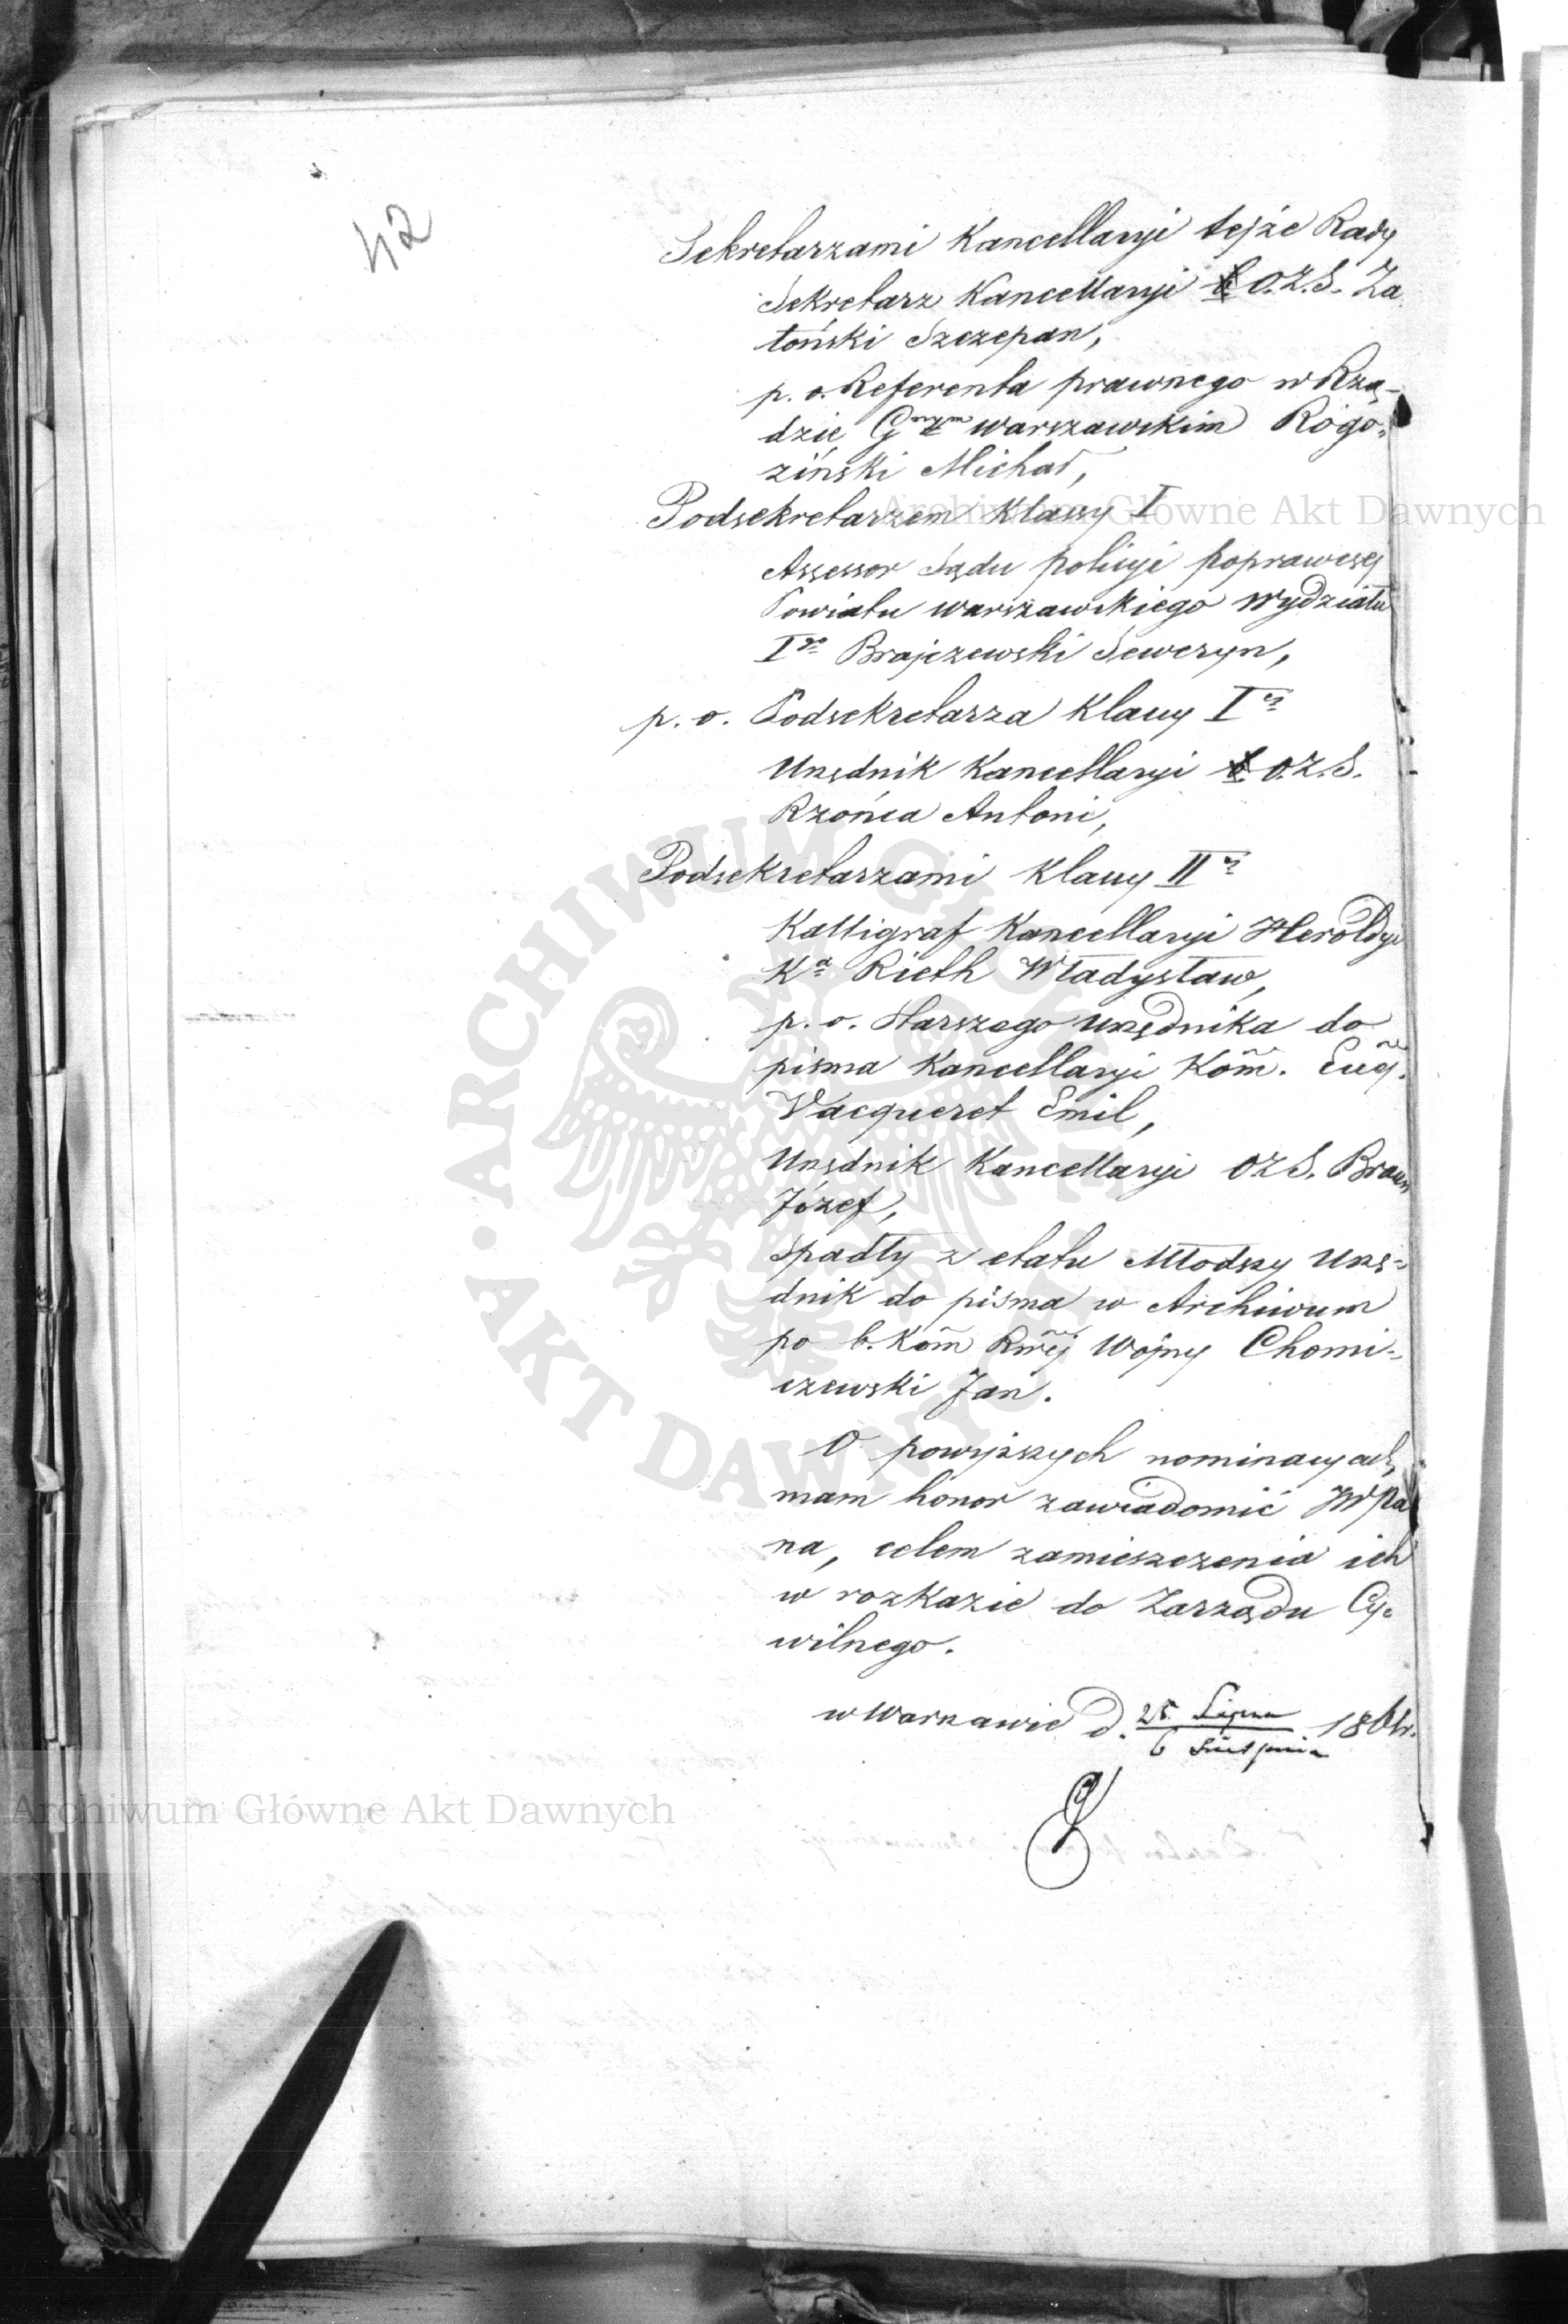 42
Sekretarzami Kancellaryi tejże Rady
Sekretarz Kancellaryi O.Z.S. Za
toński Szczepan,
p. o. Referenta prawnego w Rzą-
dzie Gnym warszawskim Rogo-
ziński Michał,
Podsekretarzem Klassy I
Assessor Sądu policyi poprawczej
Powiatu warszawskiego Wydziału
Igo Brajczewski Seweryn,
p. o. Podsekretarza Klassy Iej
Urzędnik Kancellaryi O.Z.S.
Rzońca Antoni,
Podsekretarzami Klassy IIej
Kalligraf Kancellaryi Heroldyi
Ka Rieth Władysław,
p. o. starszego urzędnika do
pisma Kancellaryi Kom.
Vacqueret Emil,
Urzędnik Kancellaryi OZS. Braun
Józef,
Spadły z etatu Młodszy Urzę-
dnik do pisma w Archiwum
po b. Kom Rwej Wojny Chomi-
czewski Jan.
O powyższych nominacyach,
mam honor zawiadomić JWPa
na, celem zamieszczenia ich
w rozkazie do Zarządu Cy-
wilnego.
w Warszawie d. 25 Lipca 186 r.
6 Sierpnia
Archiwum Główne Akt Dawnych
ARCHIWUM GŁÓWNE AKT DAWNYCH
Archiwum Główne Akt Dawnych